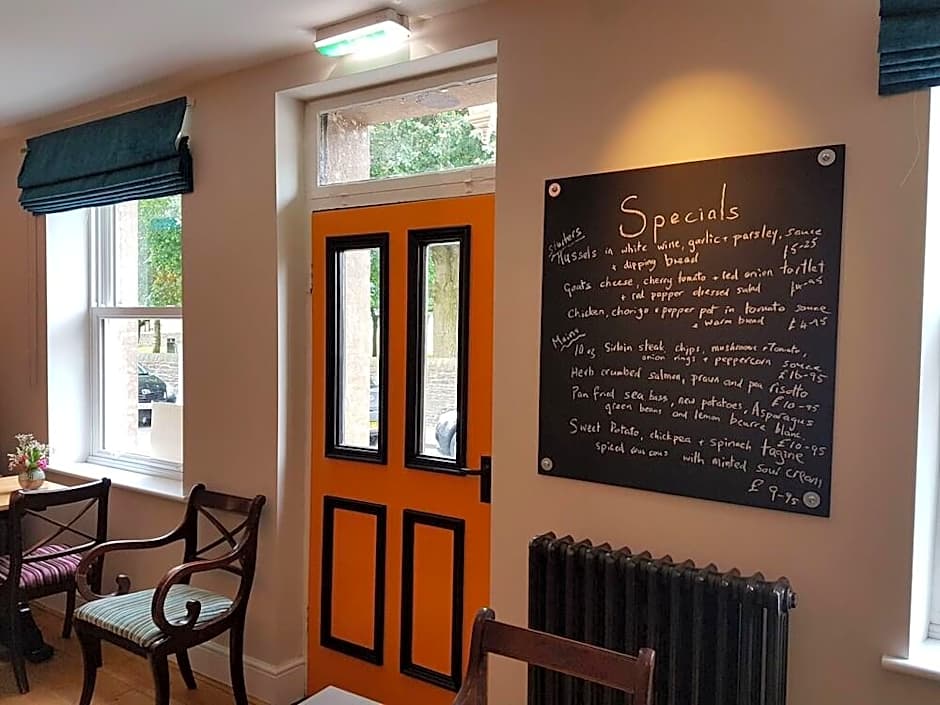 Specials
Starters
Mussels in white wine, garlic + parsley, sauce
+ dipping bread £5-25
Goats cheese, cherry tomato + red onion tartlet
+ red pepper dressed salad
Chicken, chorizo + pepper pot in tomato sauce
+ warm bread £4-95
Mains
10 oz Sirloin steak, chips, mushroom + Tomato,
onion rings + peppercorn sauce
£16-95
Herb crumbed salmon, prawn and pea risotto
£10-95
Pan fried sea bass, new potatoes, Asparagus
green beans and lemon beurre blanc
£10-95
Sweet Potato, chickpea + spinach tagine
spiced cous cous with minted sour cream
£9-95